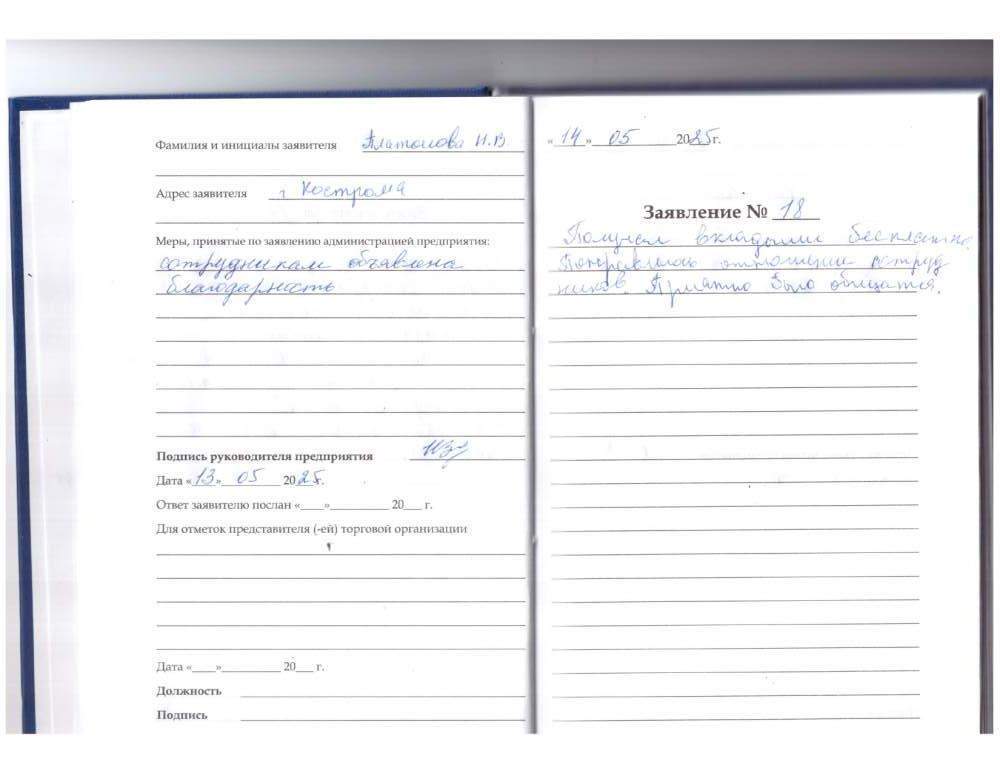 Фамилия и инициалы заявителя Платонова Н.В
Адрес заявителя г Кострома
Меры, принятые по заявлению администрацией предприятия:
сотрудникам объявлена
благодарность
Подпись руководителя предприятия
Дата «13» 05 2025г.
Ответ заявителю послан «___»__________ 20___ г.
Для отметок представителя (-ей) торговой организации
Дата «____»__________ 20___ г.
Должность
Подпись
«14» 05 2025г.
Заявление № 18
вкладыши бесплатно.
Понравилось отношение сотруд
ников. Приятно было общаться.